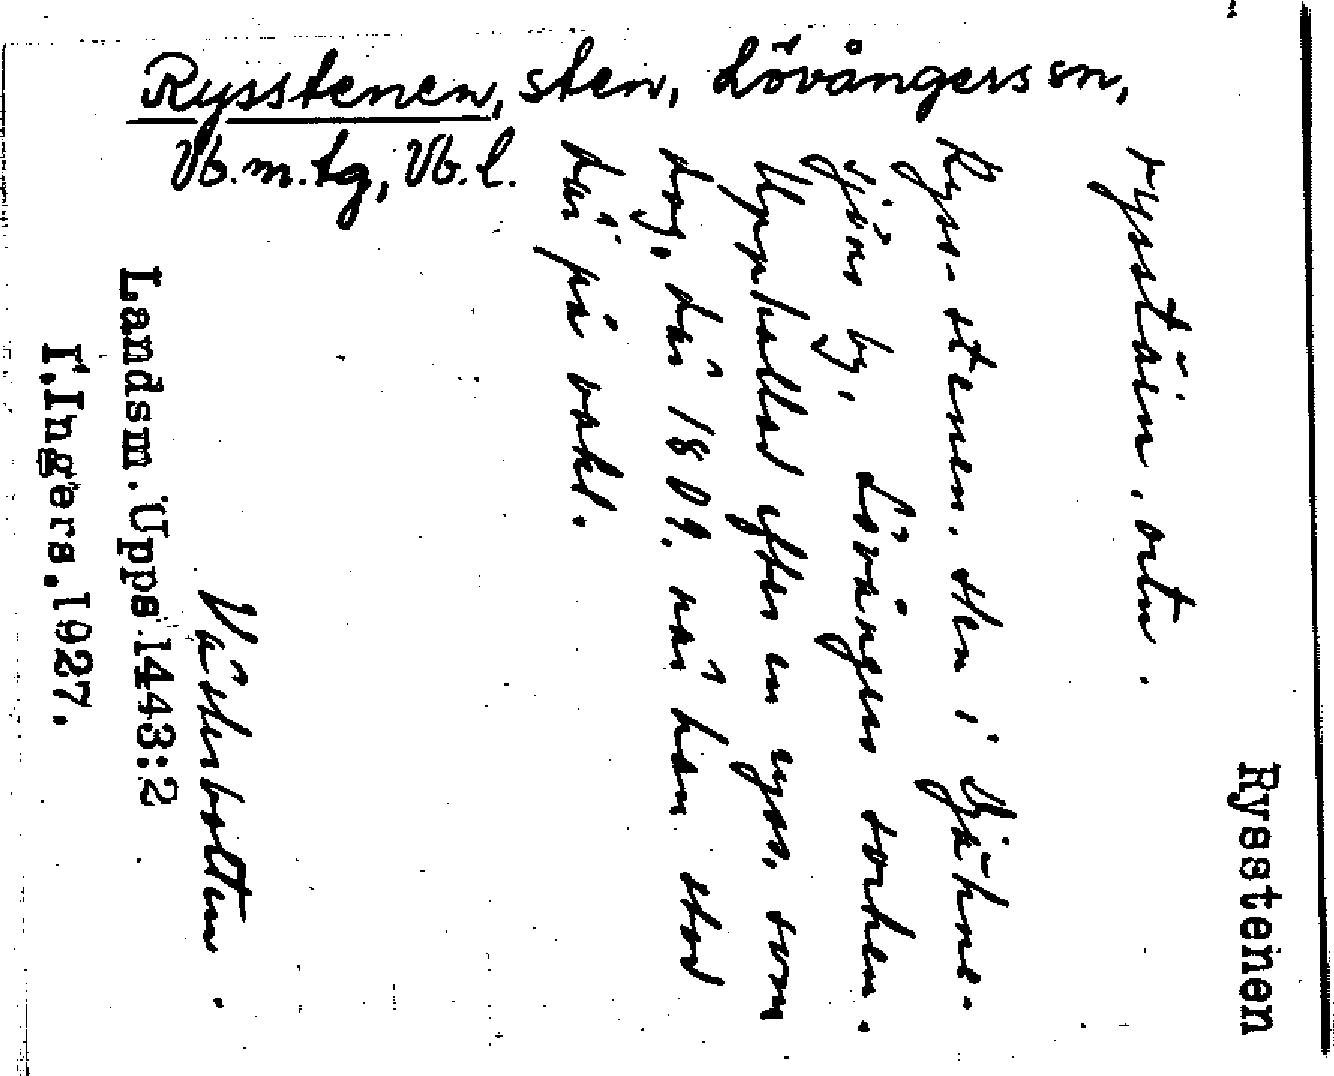 Rysstenen, sten, Lövångers sn,
Vb.m.tg, Vb.l.
Rysstenen
rysstäin, ortn.
Ryss-stenen. Sten i Gjähne-
sjöns by, Lövångers socken.
Uppkallad efter en ryss, som
dog, där 1809, när han stod
där på vakt.
Västerbotten.
Landsm.Upps.1443:2
I.Ingers.1927.